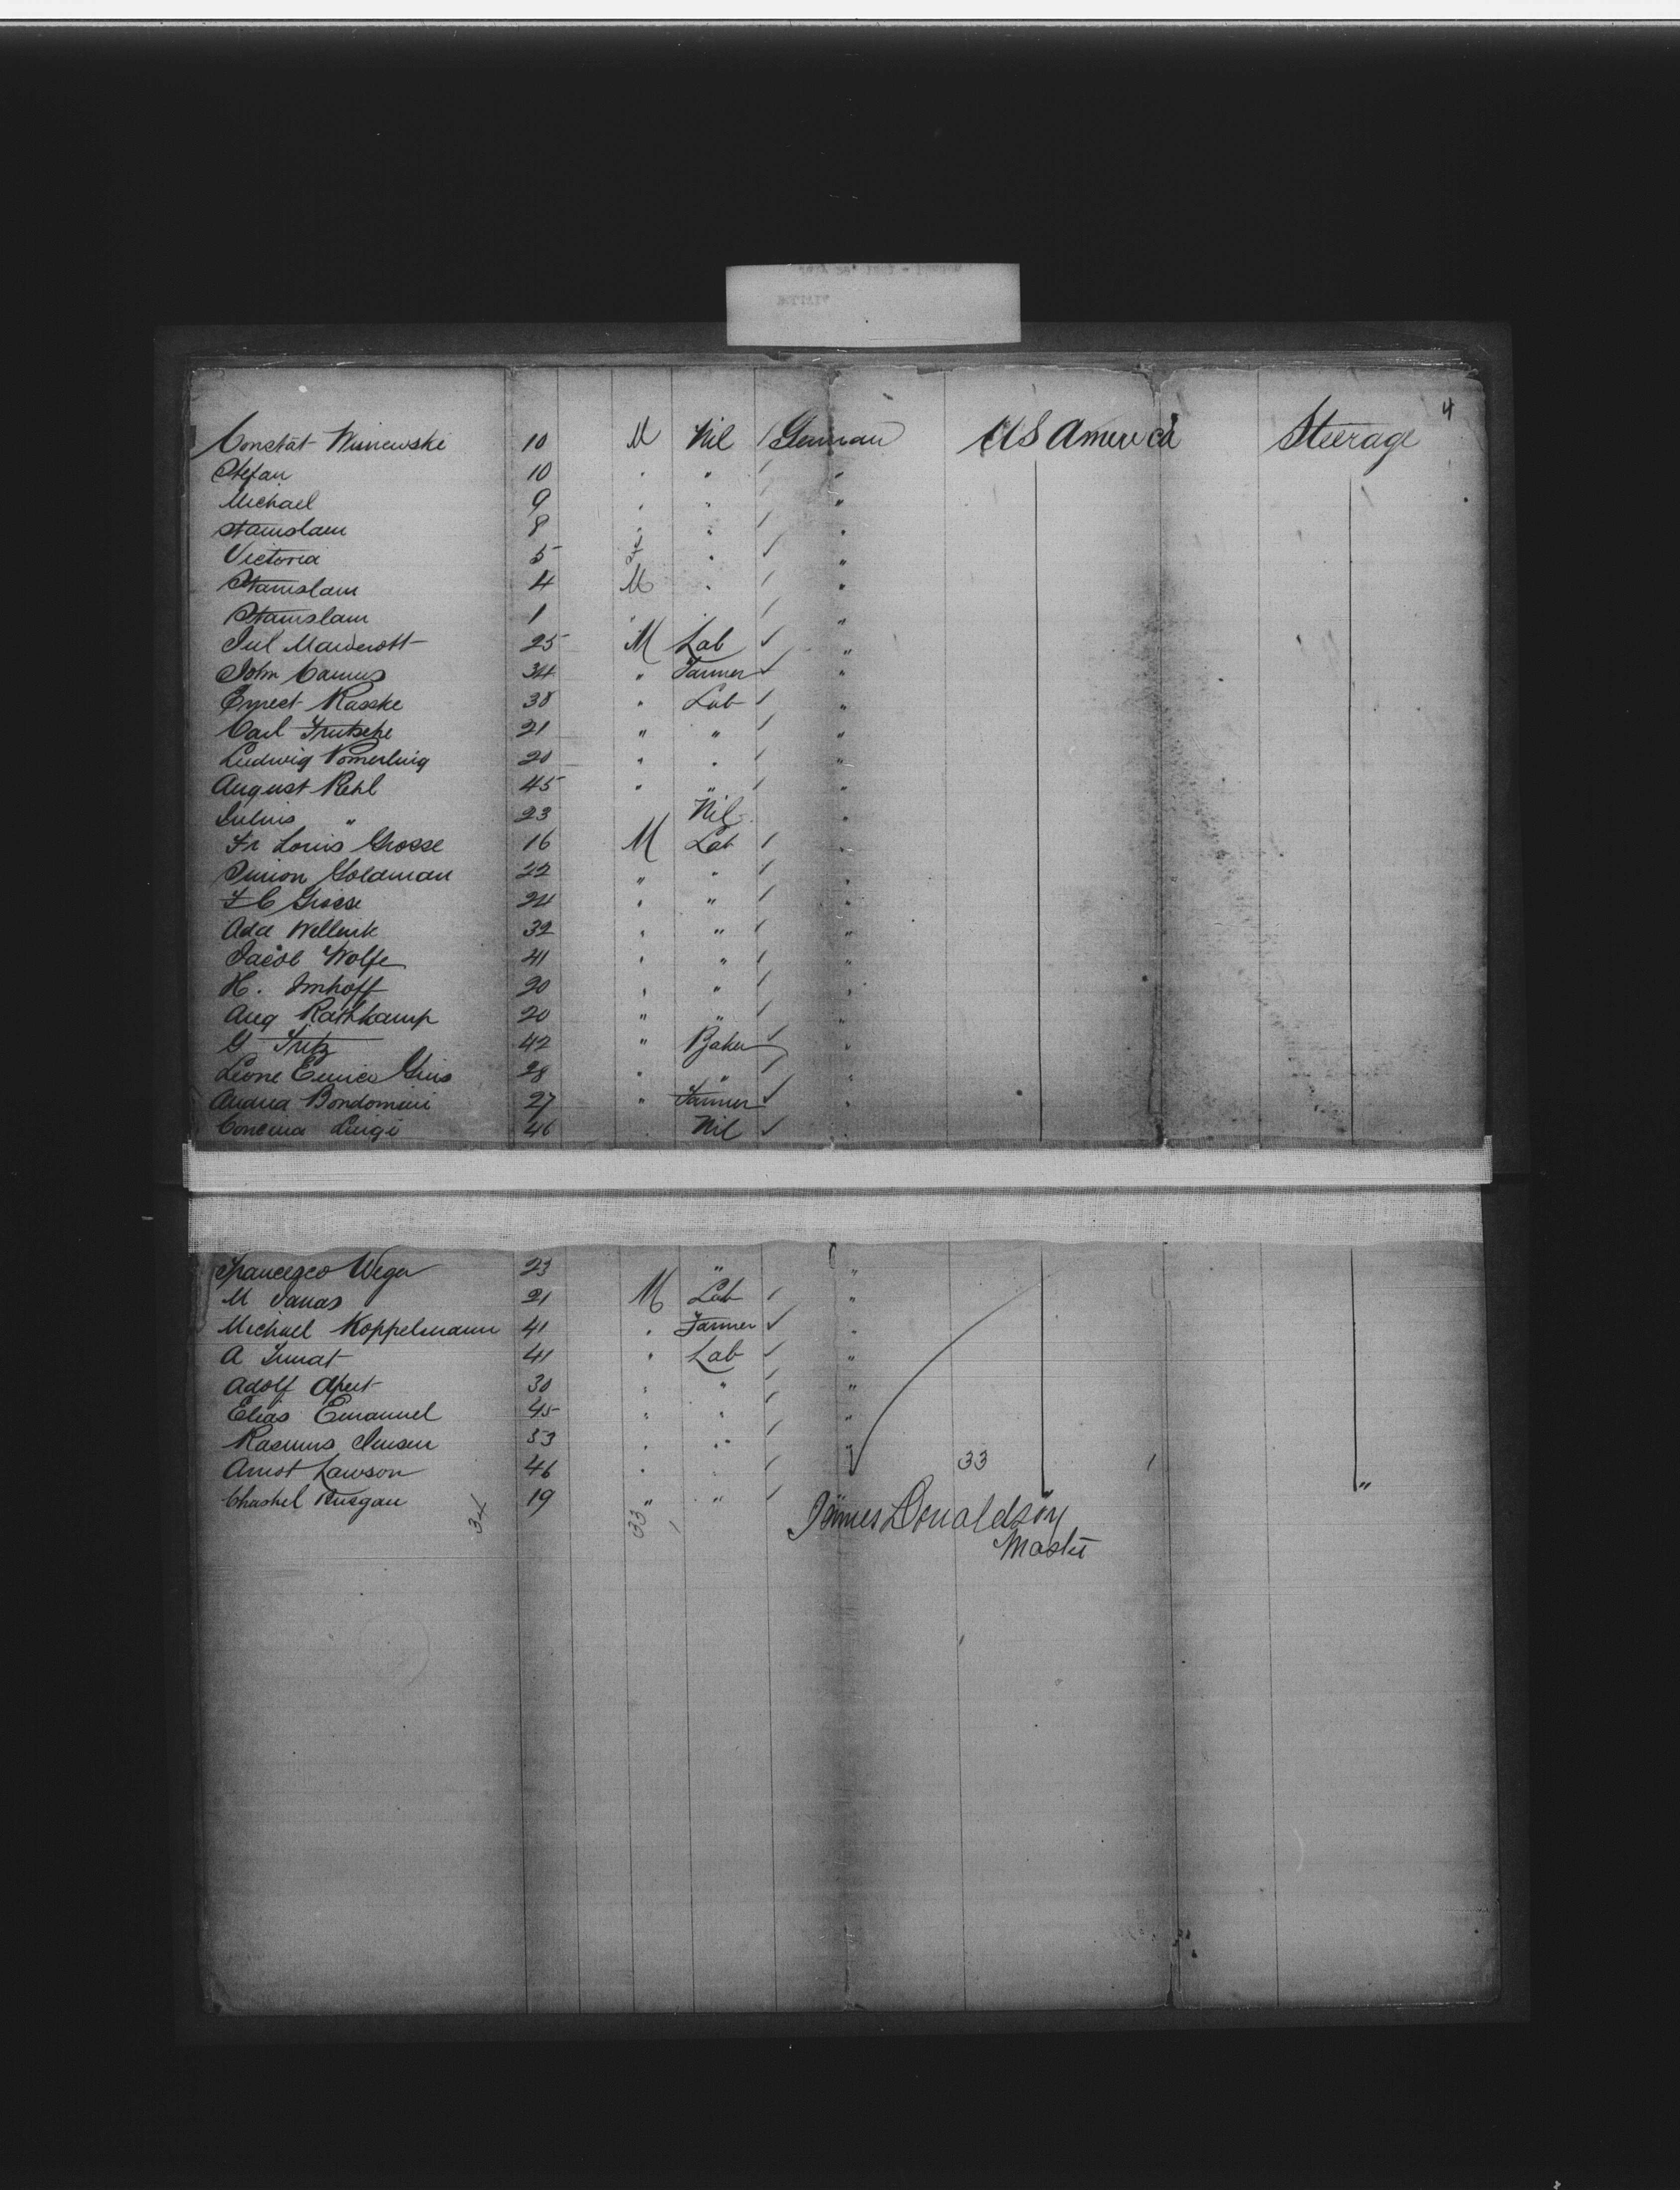 4
Constat Winiewski 10 M Nil / German US America Steerage
Stefan 10 " " / "
Michael 9 " " "
Stanislaw 8 " " / "
Victoria 5 F " ✓ "
Stanislaw 4 M " / "
Stanislaw 1 " " / "
Jul 25 M Lab ✓ "
John 34 " Farmer ✓ "
Ernest Rasske 38 " Lab / "
Carl Frutsche 21 " " / "
Ludwig 20 " " / "
August Rehl 45 " " / "
Julius " 23 Nil "
Fr Louis Grosse 16 M Lab / "
Simon Goldman 22 " " / "
F C Grosse 24 " " / "
Ada Wellenk 32 " " / "
Jacob Wolfe 41 " " / "
H. Imhoff 20 " " / "
Aug Rathkamp 20 " " / "
G Fritz 42 " Baker ✓ "
Leone Enrico 28 " " / "
Andrea Bondomini 27 " Farmer ✓ "
Concina Luigi 46 " Nil ✓ "
Francesco Weger 23 " "
M Janas 21 M Lab / "
Michael Koppelmann 41 " Farmer ✓ "
A 41 " Lab ✓ "
Adolf 30 " " / "
Elias Emanuel 45 " " / "
Rasmus Jensen 53 " " / "
Arnot Lawson 46 " " / " 33 1
Chashel 19 " " / " "
34 33 / James Donaldson
Master